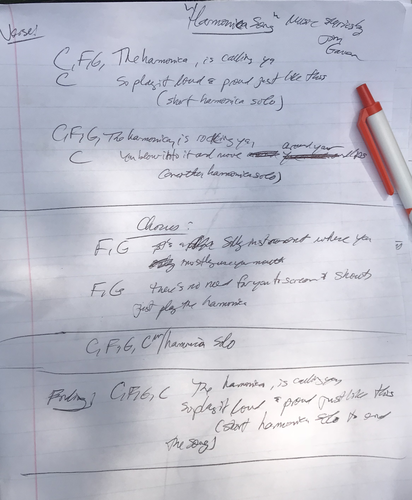 "Harmonica Song" Music
Verse:
C, F, G, The harmonica, is calling ya
C So play it loud & proud just like this
(short harmonica solo)
C, F, G, The harmonica, is rocking ya,
C You blow into it and move around your lips
(another harmonica solo)
Chorus:
F, G It's a silly instrument where you
mostly use your mouth
F, G there's no need for you to scream & shout
just play the harmonica
C, F, G, C w/harmonica solo
Ending: C, F, G, C The harmonica, is calling you
So play it loud & proud just like this
(short harmonica solo to end
the song)